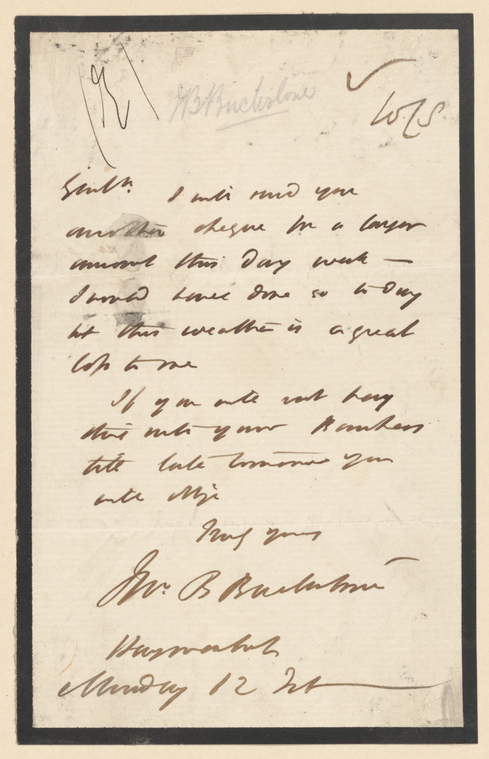 JB Buckstone
Gentn. I will send you
another cheque for a larger
amount this day week —
I would have done so to day
but this weather is a great
loss to me
If you will not pay
this into your Bankers
till late tomorrow you
will oblige
Truly yours
Jno. B Buckstone
Haymarket
Monday 12 Feb